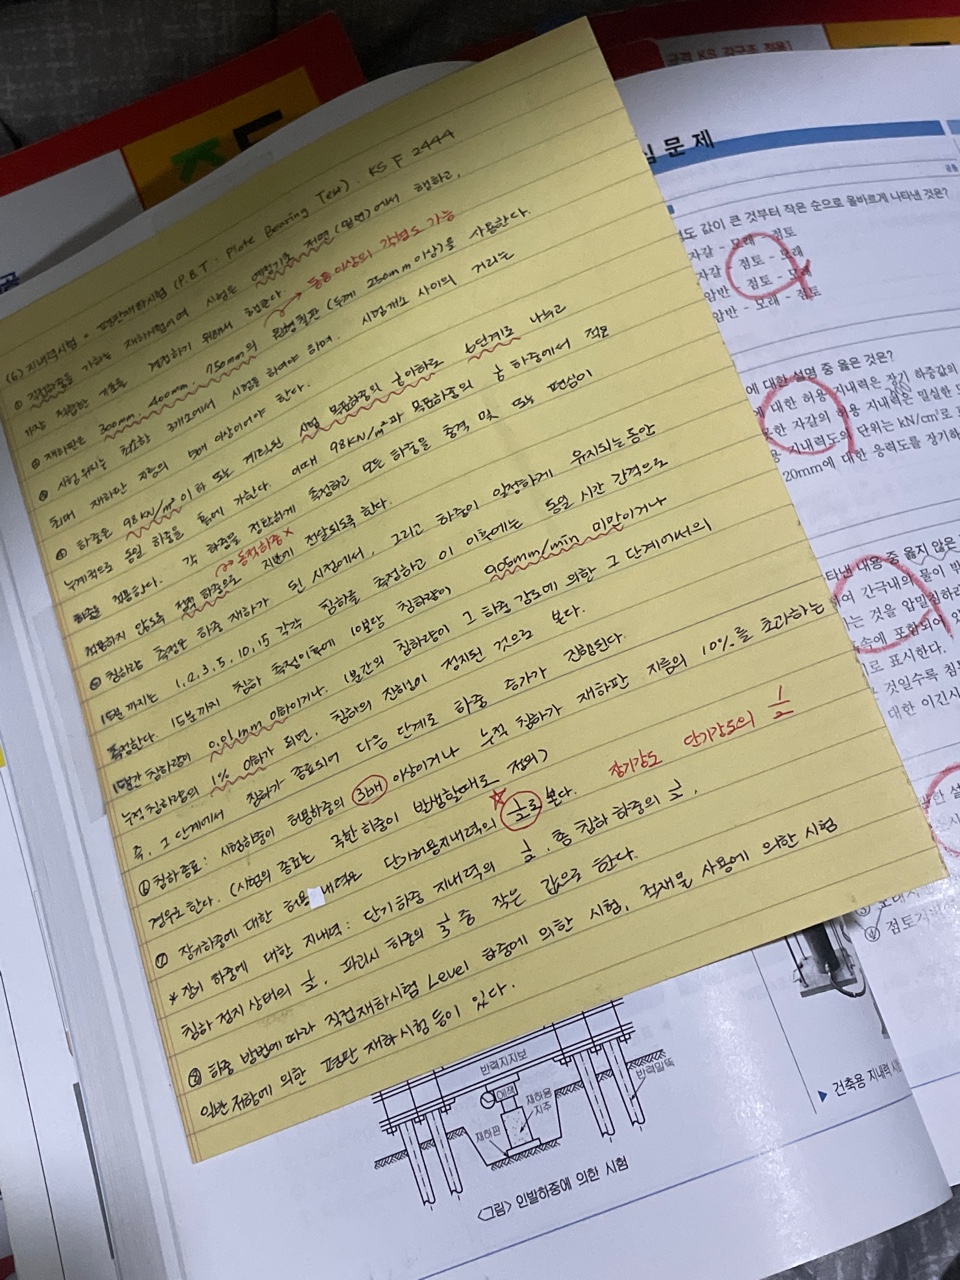 규격 KS 강구조 적용
심 문 제
(6) 지내력시험 = 평판재하시험 (P.B.T : Plate Bearing Test). KS F 2444
① 직접하중을 가하는 재하시험이며 시험은 예정기초 저면(밑면)에서 행하고,
가장 적합한 기초를 결정하기 위해서 행한다. → 동등이상의 각형도 가능
② 재하판은 300mm, 400mm, 750mm의 원형철판 (두께 250mm 이상)을 사용한다.
③ 시험위치는 최소한 3개소에서 시험을 하여야 하며, 시험개소 사이의 거리는
최대 재하판 지름의 5배 이상이어야 한다.
④ 하중은 98kN/m² 이하 또는 계획된 시험 목표하중의 1/8이하로 6단계로 나누고
누계적으로 동일 하중을 흙에 가한다. 이때 98kN/m²과 목표하중의 하중에서 적은
하중을 적용한다. 각 하중을 정확하게 측정하고 모든 하중을 충격 및 또는 편심이
작용하지 않도록 정적 하중으로 지반에 전달되도록 한다.
동적하중 X
⑤ 침하량 측정은 하중 재하가 된 시점에서, 그리고 하중이 일정하게 유지되는 동안
15분 까지는 1, 2, 3, 5, 10, 15 각각 침하를 측정하고 이 이후에는 동일 시간 간격으로
측정한다. 15분까지 침하 측정이후에 10분당 침하량이 0.05mm/min 미만이거나
15분간 침하량이 0.01mm 이하이거나, 1분간의 침하량이 그 하중 강도에 의한 그 단계에서의
누적 침하량의 1% 이하가 되면, 침하의 진행이 정지된 것으로 본다.
즉, 그 단계에서 침하가 종료되어 다음 단계로 하중 증가가 진행된다.
⑥ 침하종료 : 시험하중이 허용하중의 3배 이상이거나 누적 침하가 재하판 지름의 10%를 초과하는
경우로 한다. (시험의 종료는 극한 하중이 발생할때로 정의)
⑦ 장기하중에 대한 허용 내력은 단기허용지내력의 1/2로 본다. 장기강도 단기강도의 1/2
* 장기 하중에 대한 지내력 : 단기하중 지내력의 1/2, 총 침하 하중의 1/2,
침하 정지 상태의 1/2, 파괴시 하중의 1/3 중 작은 값으로 한다.
⑧ 하중 방법에 따라 직접재하시험 Level 하중에 의한 시험, 적재물 사용에 의한 시험
인반 저항에 의한 평판 재하 시험 등이 있다.
도 값이 큰 것부터 작은 순으로 올바르게 나타낸 것은?
자갈 - 모래 - 점토
자갈 - 점토 - 모래
암반 - 점토 - 모래
암반 - 모래 - 점토
에 대한 설명 중 옳은 것은?
대한 허용 지내력은 장기 하중값의
자갈의 허용 지내력은 밀실한
지내력도의 단위는 kN/cm²로
20mm에 대한 응력도를 장기하
타낸 내용 중 옳지 않은
여 간극내의 물이
는 것을 압밀침하라
속에 포함되어
로 표시한다.
것일수록 침
대한 이긴시
한 설
점토지
반력지지보
잭
재하용
지주
재하판
반력말뚝
<그림> 인발하중에 의한 시험
▶ 건축용 지내력 시